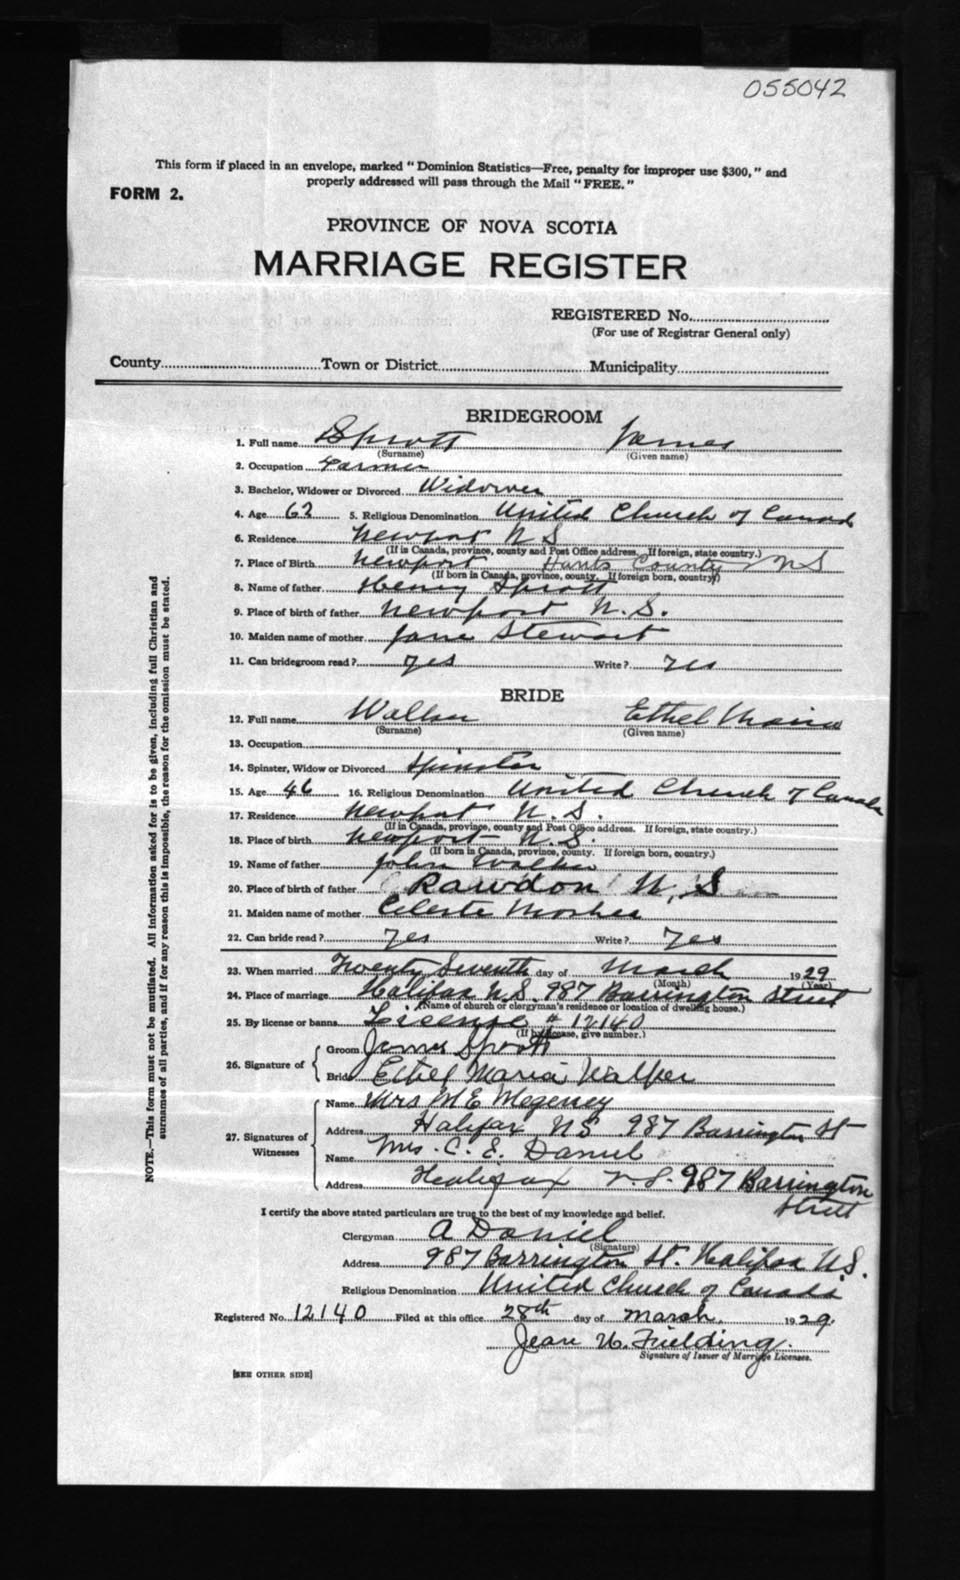 055042
This form if placed in an envelope, marked "Dominion Statistics—Free, penalty for improper use $300," and
properly addressed will pass through the Mail "FREE."
FORM 2.
PROVINCE OF NOVA SCOTIA
MARRIAGE REGISTER
REGISTERED No.
(For use of Registrar General only)
County Town or District Municipality
BRIDEGROOM
1. Full name Sprott James
(Surname) (Given name)
2. Occupation Farmer
3. Bachelor, Widower or Divorced Widower
4. Age 62 5. Religious Denomination United Church of Canada
6. Residence Newport N S
(If in Canada, province, county and Post Office address. If foreign, state country.)
7. Place of Birth Newport Hants County NS
(If born in Canada, province, county. If foreign born, country)
8. Name of father Henry Sprott
9. Place of birth of father Newport N.S.
10. Maiden name of mother Jane Stewart
11. Can bridegroom read? yes Write? yes
BRIDE
12. Full name Walker Ethel Maria
(Surname) (Given name)
13. Occupation
14. Spinster, Widow or Divorced Spinster
15. Age 46 16. Religious Denomination United Church of Canada
17. Residence Newport N.S.
(If in Canada, province, county and Post Office address. If foreign, state country.)
18. Place of birth Newport N.S.
(If born in Canada, province, county. If foreign born, country.)
19. Name of father John Walker
20. Place of birth of father Rawdon N, S
21. Maiden name of mother Celeste Mosher
22. Can bride read? Yes Write? Yes
23. When married Twenty Seventh day of March 1929
(Month) (Year)
24. Place of marriage Halifax N.S. 987 Barrington Street
(Name of church or clergyman's residence or location of dwelling house.)
25. By license or banns License # 12140
(If by license, give number.)
26. Signature of Groom James Sprott
Bride Ethel Maria Walker
27. Signatures of Witnesses Name Mrs M E Megeney
Address Halifax NS 987 Barrington St
Name Mrs. C. E. Daniel
Address Halifax N.S. 987 Barrington
Street
I certify the above stated particulars are true to the best of my knowledge and belief.
Clergyman A Daniel
(Signature)
Address 987 Barrington St. Halifax N.S.
Religious Denomination United Church of Canada
Registered No. 12140 Filed at this office 28th day of March, 1929.
Jean U. Fielding.
Signature of Issuer of Marriage Licenses.
[SEE OTHER SIDE]
NOTE.—This form must not be mutilated. All information asked for is to be given, including full Christian and
surnames of all parties, and if for any reason this is impossible, the reason for the omission must be stated.